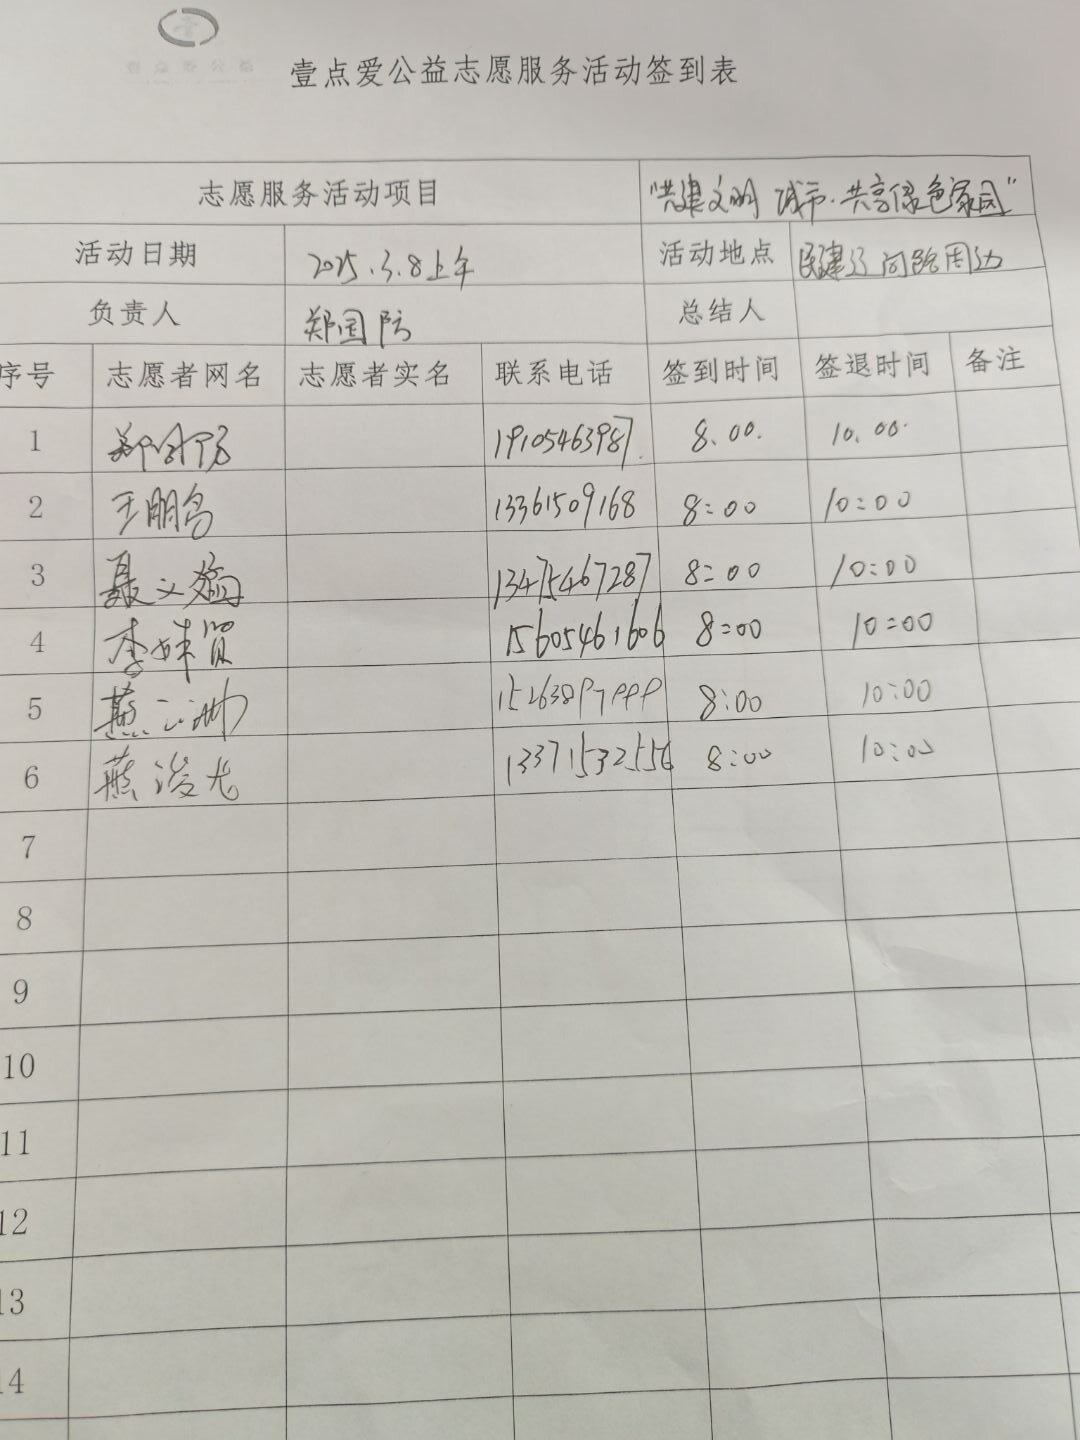 壹点爱公益志愿服务活动签到表
志愿服务活动项目 “共建文明 城市·共享绿色家园”
活动日期 2025.3.8上午 活动地点 民建 问路周边
负责人 郑国防 总结人
序号 志愿者网名 志愿者实名 联系电话 签到时间 签退时间 备注
1 郑国防 19105463987 8.00. 10.00.
2 王朋鸟 13361509168 8:00 10:00
3 聂文 13475467287 8:00 10:00
4 李妹贤 15605461606 8:00 10:00
5 燕 8:00 10:00
6 燕浚龙 13371532556 8:00 10:00
7
8
9
10
11
12
13
14